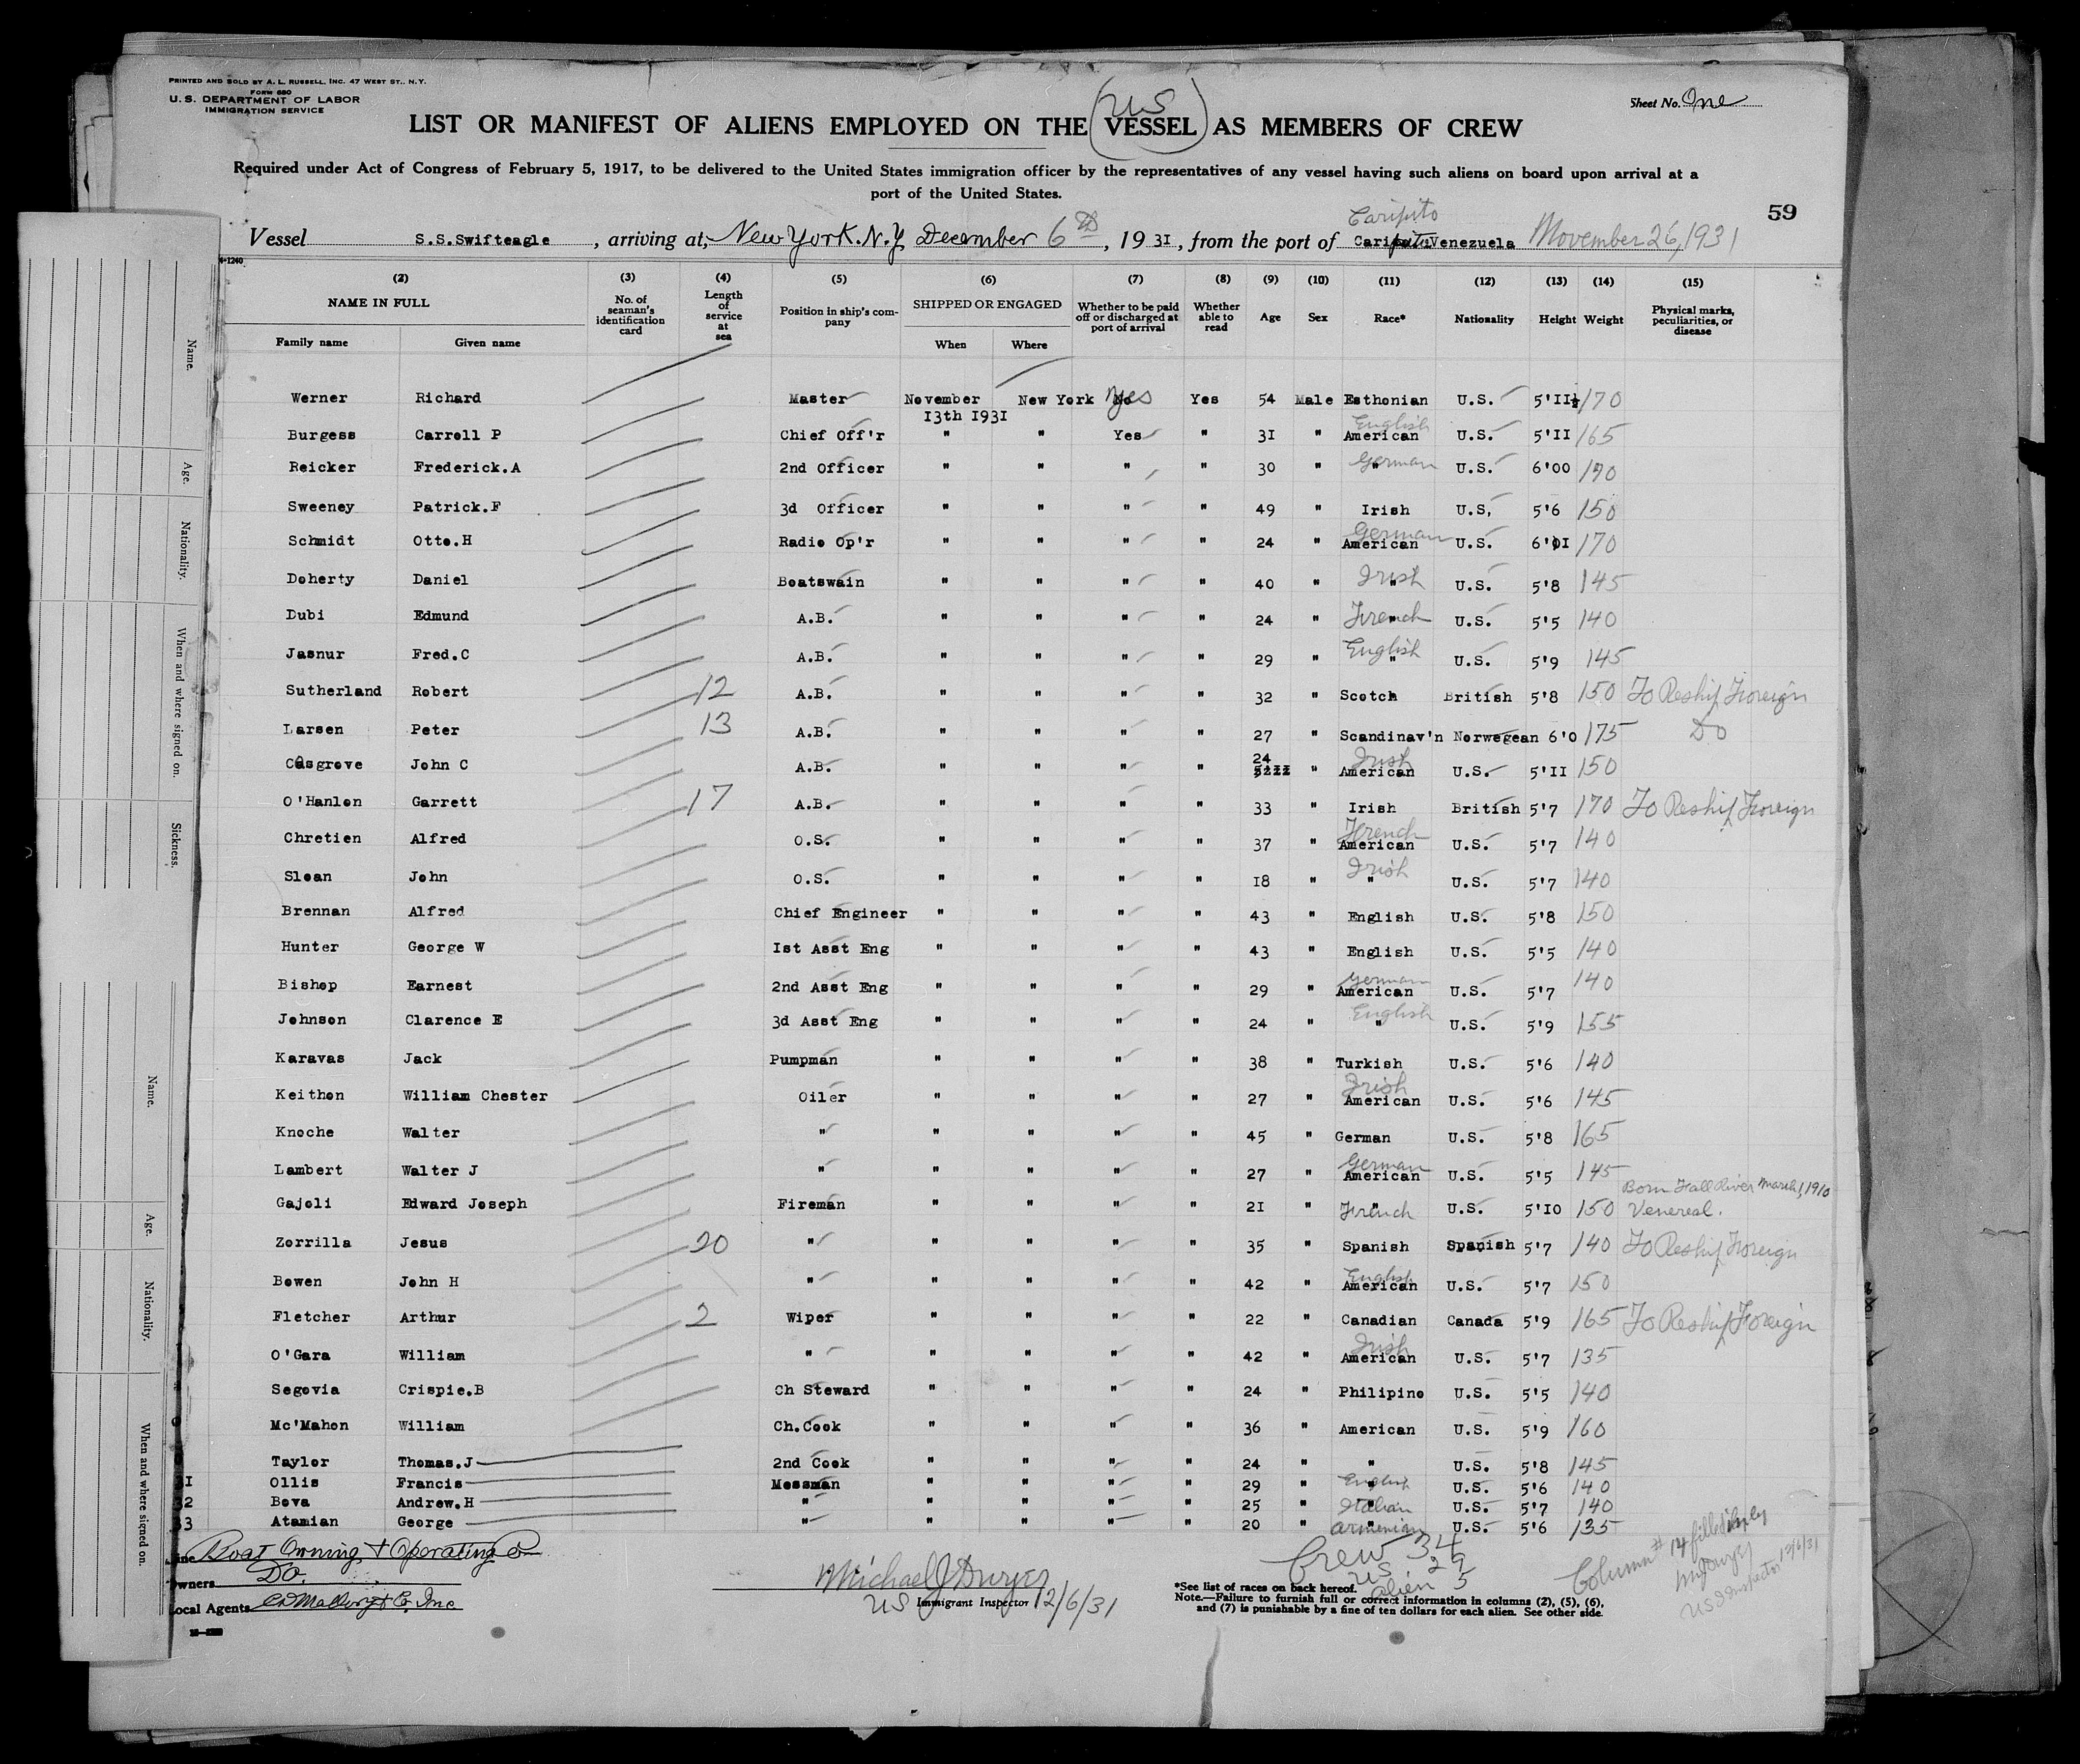 PRINTED AND SOLD BY A. L. RUSSELL, INC. 47 WEST ST., N.Y.
FORM 680
U. S. DEPARTMENT OF LABOR
IMMIGRATION SERVICE
Sheet No. One
US
LIST OR MANIFEST OF ALIENS EMPLOYED ON THE VESSEL AS MEMBERS OF CREW
Required under Act of Congress of February 5, 1917, to be delivered to the United States immigration officer by the representatives of any vessel having such aliens on board upon arrival at a
port of the United States.
59
Caripito
Vessel S.S.Swifteagle, arriving at, New York. N.Y. December 6th, 1931, from the port of Caripito Venezuela November 26, 1931
(2) (3) (4) (5) (6) (7) (8) (9) (10) (11) (12) (13) (14) (15)
NAME IN FULL No. of seaman's identification card Length of service at sea Position in ship's company SHIPPED OR ENGAGED Whether to be paid off or discharged at port of arrival Whether able to read Age Sex Race* Nationality Height Weight Physical marks, peculiarities, or disease
Family name Given name When Where
Werner Richard Master November 13th 1931 New York Yes Yes 54 Male Esthonian U.S. 5'11½ 170
Burgess Carroll P Chief Off'r " " Yes " 31 " English American U.S. 5'11 165
Reicker Frederick.A 2nd Officer " " " " 30 " German " U.S. 6'00 190
Sweeney Patrick.F 3d Officer " " " " 49 " Irish U.S, 5'6 150
Schmidt Otto.H Radio Op'r " " " " 24 " German American U.S. 6'01 170
Doherty Daniel Boatswain " " " " 40 " Irish " U.S. 5'8 145
Dubi Edmund A.B. " " " " 24 " French " U.S. 5'5 140
Jasnur Fred.C A.B. " " " " 29 " English " U.S. 5'9 145
Sutherland Robert 12 A.B. " " " " 32 " Scotch British 5'8 150 To Reship Foreign
Larsen Peter 13 A.B. " " " " 27 " Scandinav'n Norwegean 6'0 175 Do
Cosgrove John C A.B. " " " " 24 " Irish American U.S. 5'11 150
O'Hanlon Garrett 17 A.B. " " " " 33 " Irish British 5'7 170 To Reship Foreign
Chretien Alfred O.S. " " " " 37 " French American U.S. 5'7 140
Sloan John O.S. " " " " 18 " Irish " U.S. 5'7 140
Brennan Alfred Chief Engineer " " " " 43 " English U.S. 5'8 150
Hunter George W 1st Asst Eng " " " " 43 " English U.S. 5'5 140
Bishop Earnest 2nd Asst Eng " " " " 29 " German American U.S. 5'7 140
Johnson Clarence E 3d Asst Eng " " " " 24 " English " U.S. 5'9 155
Karavas Jack Pumpman " " " " 38 " Turkish U.S. 5'6 140
Keithon William Chester Oiler " " " " 27 " Irish American U.S. 5'6 145
Knoche Walter " " " " " 45 " German U.S. 5'8 165
Lambert Walter J " " " " " 27 " German American U.S. 5'5 145
Born Fall River March 1, 1910
Gajoli Edward Joseph Fireman " " " " 21 " French " U.S. 5'10 150 Venereal.
Zorrilla Jesus 20 " " " " " 35 " Spanish Spanish 5'7 140 To Reship Foreign
Bowen John H " " " " " 42 " English American U.S. 5'7 150
Fletcher Arthur 2 Wiper " " " " 22 " Canadian Canada 5'9 165 To Reship Foreign
O'Gara William " " " " " 42 " Irish American U.S. 5'7 135
Segovia Crispie.B Ch Steward " " " " 24 " Philipino U.S. 5'5 140
Mc'Mahon William Ch.Cook " " " " 36 " American U.S. 5'9 160
Taylor Thomas.J 2nd Cook " " " " 24 " " U.S. 5'8 145
31 Ollis Francis Messman " " " " 29 " English " U.S. 5'6 140
32 Bova Andrew.H " " " " " 25 " Italian " U.S. 5'7 140
33 Atamian George " " " " " 20 " Armenian " U.S. 5'6 135
Line Boat Owning & Operating Co
Owners Do.
Local Agents CD Mallory & Co. Inc
Michael J Dwyer
US Immigrant Inspector 12/6/31
Crew 34
US 29
alien 5
*See list of races on back hereof.
Note.—Failure to furnish full or correct information in columns (2), (5), (6),
and (7) is punishable by a fine of ten dollars for each alien. See other side.
Column # 14 filled in by
MJ Dwyer
US Inspector 12/6/31
Name.
Age.
Nationality.
When and where signed on.
Sickness.
Name.
Age.
Nationality.
When and where signed on.